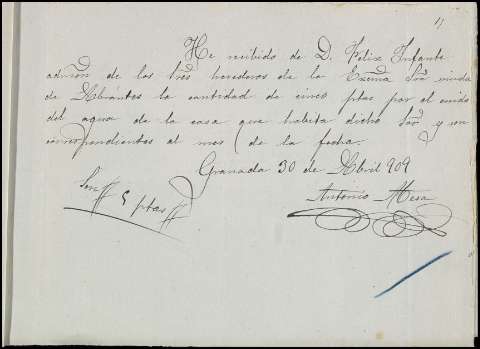 He recibido de D. Felix Infante
admon de los tres herederos de la Excma Sra viuda
de Abrantes la cantidad de cinco ptas por el
del agua de la casa que habita dicha Sra y son
correspondientes al mes de la fecha.
Granada 30 de Abril 909
Son 5 ptas
Antonio Mesa